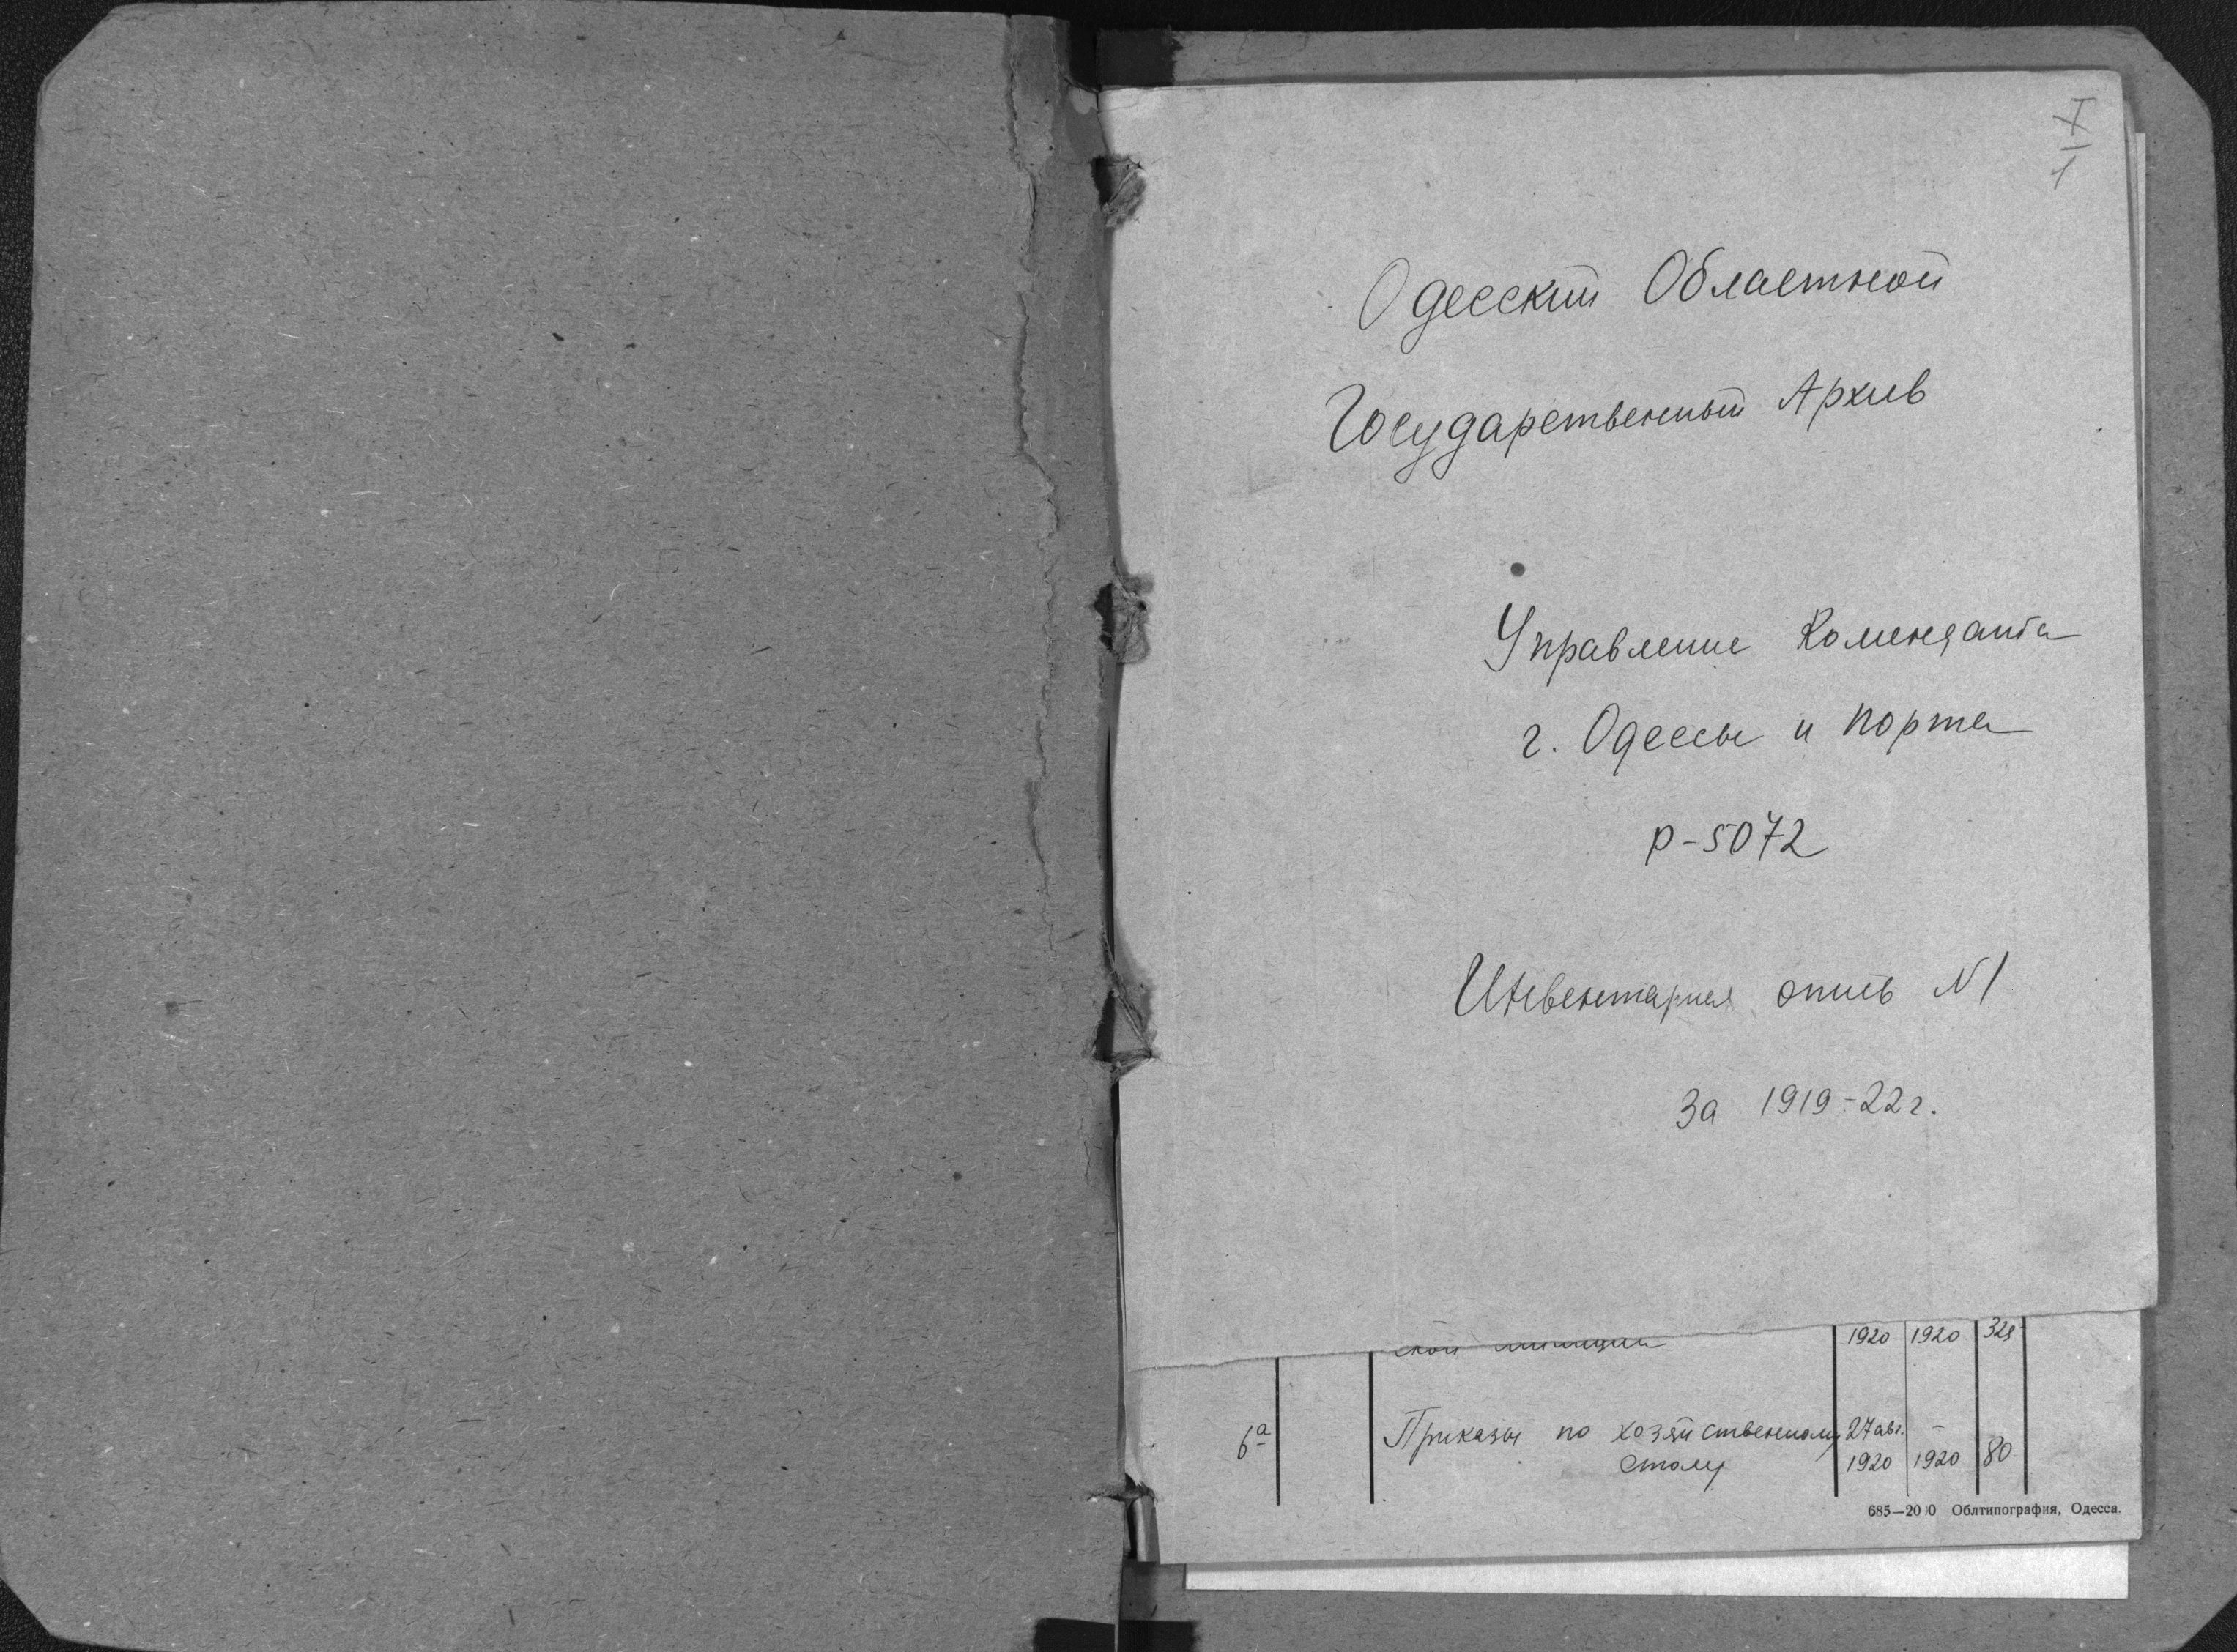 I
1
Одесский Областной
Государственный Архив
Управление Коменданта
г. Одессы и порта
р-5072
Инвентарная опись N1
За 1919-22г.
ской милиции 1920 1920
6а Приказы по хозяйственному 27 авг. -
столу 1920 1920 80
685—2000 Облтипография, Одесса.